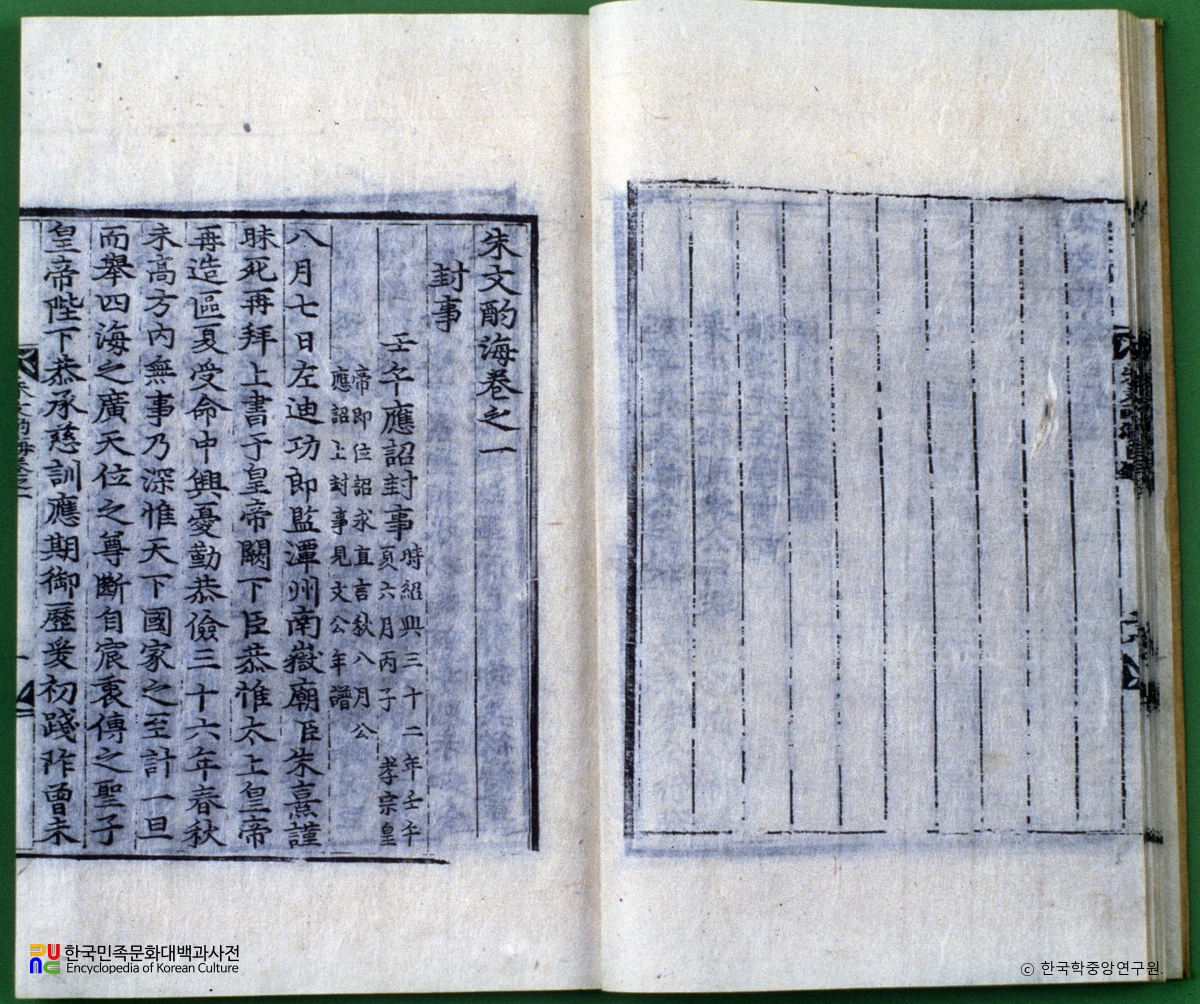 朱文酌海卷之一
封事
壬午應詔封事
時紹興三十二年壬午
亥六月丙子 孝宗皇
帝即位詔求直言秋八月公
應詔上封事見文公年譜
八月七日左迪功郎監潭州南嶽廟臣朱熹謹
昧死再拜上書于皇帝闕下臣恭惟太上皇帝
再造區夏受命中興憂勤恭儉三十六年春秋
未高方內無事乃深惟天下國家之至計一旦
而舉四海之廣天位之尊斷自宸衷傳之聖子
皇帝陛下恭承慈訓應期御歷爰初踐阼曾未
朱文酌海卷之一
一
한국민족문화대백과사전
Encyclopedia of Korean Culture
© 한국학중앙연구원